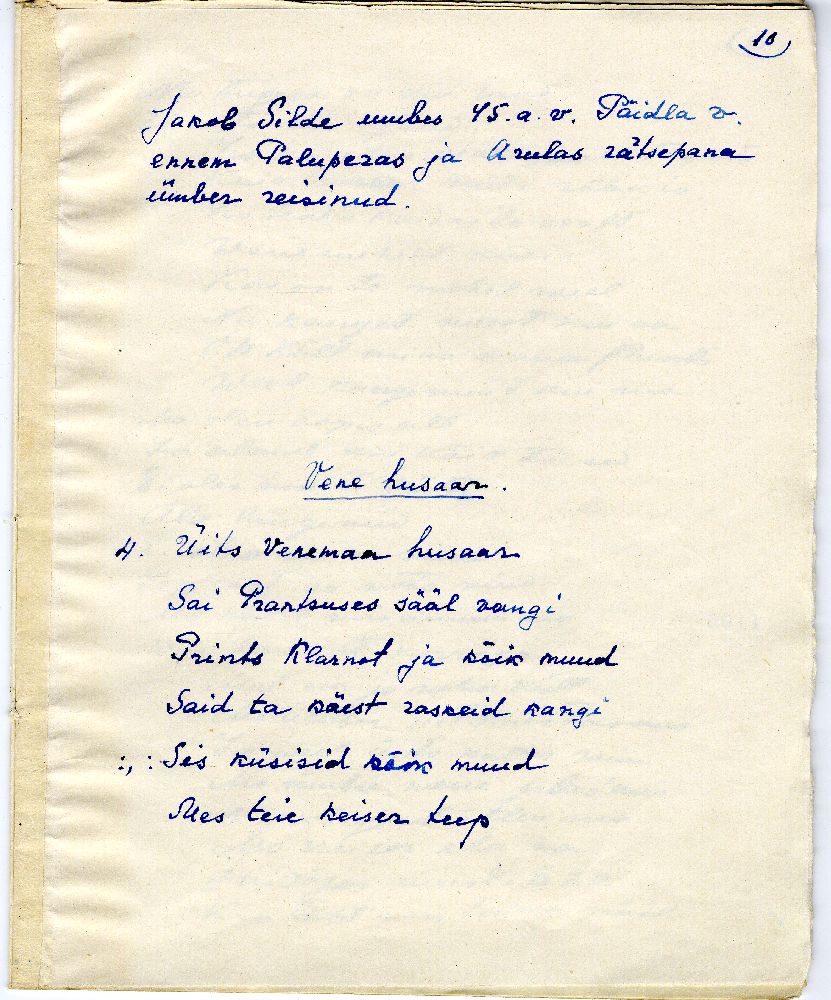 10
Jakob Silde umbes 45.a.v. Päidla v.
ennem Paluperas ja Arulas rätsepana
ümber reisinud.
Vene husaar.
4. Üits Venemaa husaar
Sai Prantsuses sääl vangi
Prints Klarnot ja kõik muud
Said ta käest raskeid kangi
:,: Sis küsisid kõik muud
Mes teie keiser teep